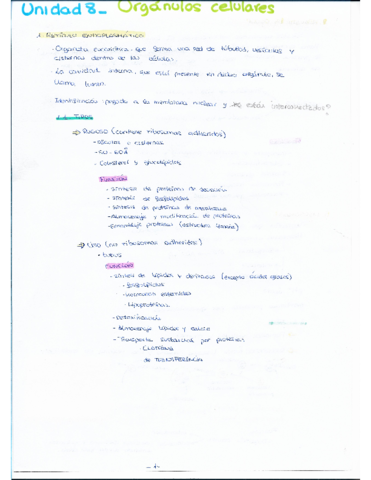 Unidad 8_ Orgánulos celulares
1. Retículo endoplasmático
· Orgánulo eucariótico, que forma una red de túbulos, vesículas y
cisternas dentro de las células.
· La cavidad interna, que está presente en dicho orgánulo, se
llama lumen.
pegado a la membrana nuclear y interconectados
1.1. Tipos
⇒ Rugoso (contiene ribosomas adheridos)
cisternas
- Colesterol y glucolípidos
Función
- Síntesis de proteínas de secreción
- Síntesis de fosfolípidos
- Síntesis de proteínas de membrana
- Almacenaje y modificación de proteínas
- Ensamblaje proteínas (estructura
⇒ Liso (no ribosomas adheridos)
· Tubos
Función
- Síntesis de lípidos y derivados (excepto ácidos grasos)
· Fosfolípidos
· Hormonas esteroideas
· Lipoproteínas
- Detoxificación
- Almacenaje lípidos y calcio
- Transporte sustancias por proteínas
de TRANSFERENCIA
-1-